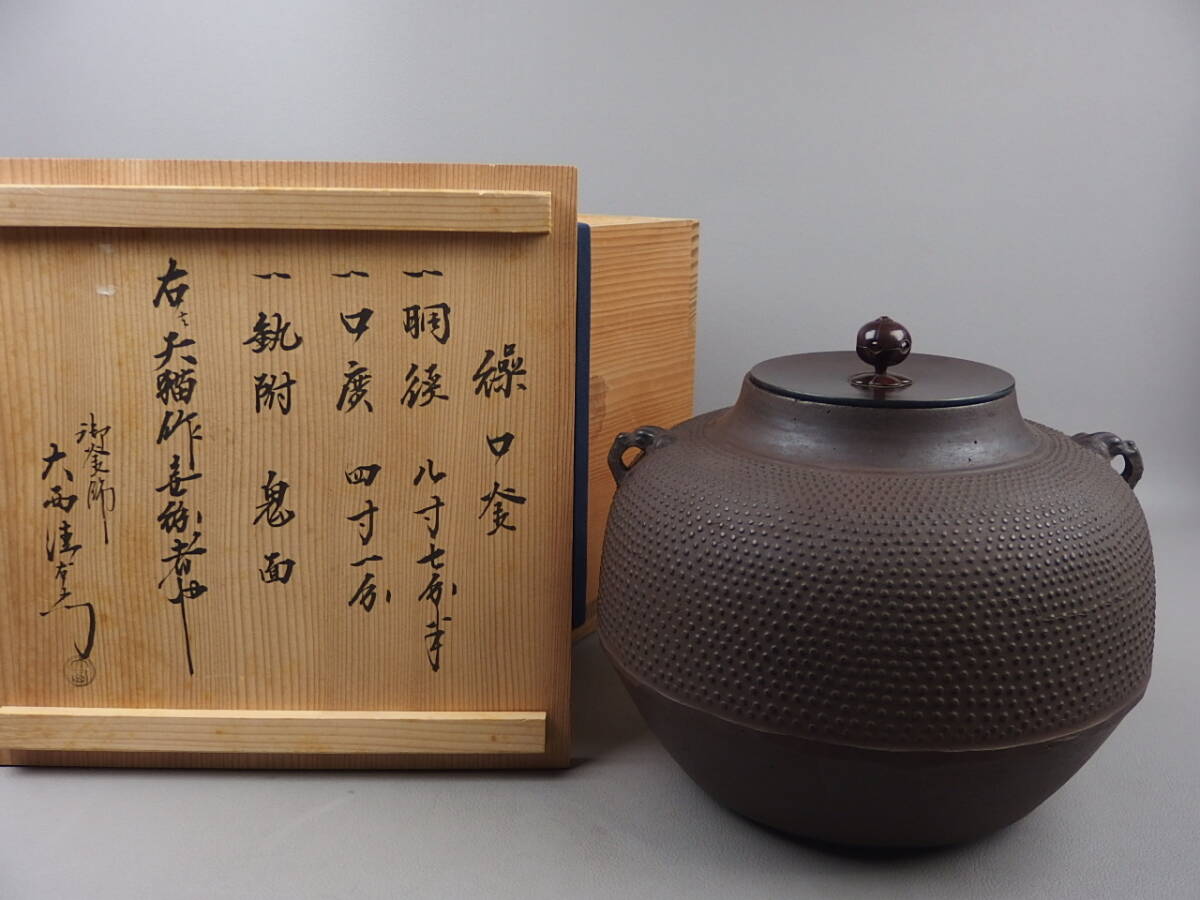 繰口釜
一 胴径 八寸七分半
一 口廣 四寸一分
一 釻附 鬼面
右之大西作無紛者也
御釜師
大西清右衛門